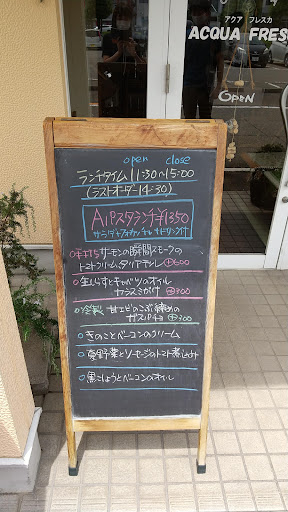 アクア フレスカ
ACQUA FRES
OPEN
open close
ランチタイム 11:30~15:00
(ラストオーダー14:30)
Aパスタランチ ¥1350
サラダ+フォカッチャ+ドリンク付
サーモンの瞬間スモークの
トマトクリーム タリアテッレ
○生しらすとキャベツのオイル
カラスミがけ ⊕300
○冷製 甘エビのこぶ締めの
ガスパチョ ⊕300
○きのことベーコンのクリーム
○夏野菜とソーセージのトマト煮込み
○黒こしょうとベーコンのオイル